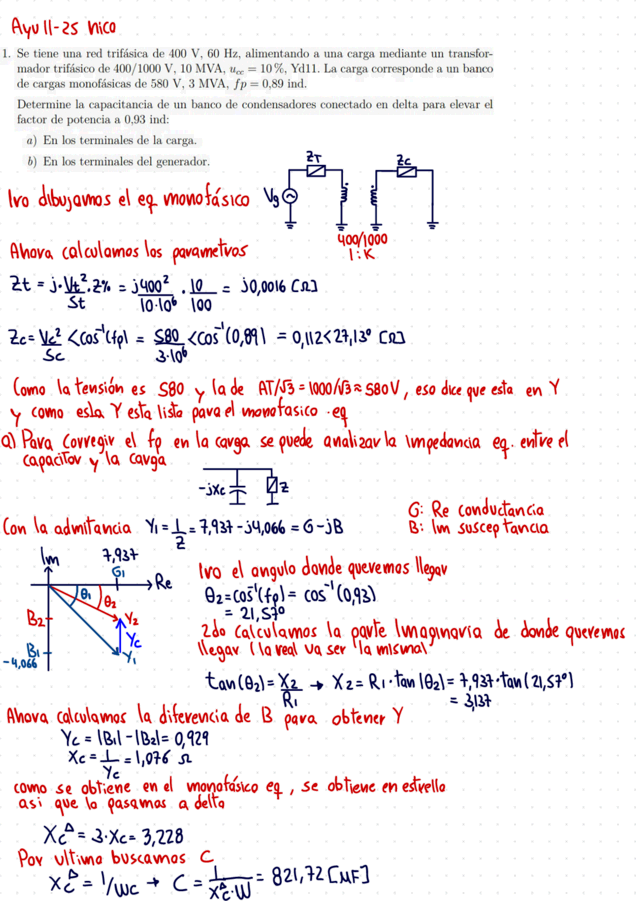 Ayu 11-25 nico
1. Se tiene una red trifásica de 400 V, 60 Hz, alimentando a una carga mediante un transfor-
mador trifásico de 400/1000 V, 10 MVA, ucc = 10 %, Yd11. La carga corresponde a un banco
de cargas monofásicas de 580 V, 3 MVA, fp = 0,89 ind.
Determine la capacitancia de un banco de condensadores conectado en delta para elevar el
factor de potencia a 0,93 ind:
a) En los terminales de la carga.
b) En los terminales del generador.
1ro dibujamos el eq monofásico
Vg ZT Zc
400/1000
1:K
Ahora calculamos los parametros
Zt = j·Vt²/St·Z% = j400²/10·10⁶ · 10/100 = j0,0016 [Ω]
Zc = Vc²/Sc <cos⁻¹(fp) = 580/3·10⁶ <cos⁻¹(0,89) = 0,112<27,13° [Ω]
Como la tensión es 580 y la de AT/√3 = 1000/√3 ≈ 580V, eso dice que esta en Y
y como esta Y esta lista para el monofasico eq
a) Para corregir el fp en la carga se puede analizar la impedancia eq. entre el
capacitor y la carga
-jXc Z
Con la admitancia Y₁ = 1/Z = 7,937 - j4,066 = G - jB
G: Re conductancia
B: Im susceptancia
Im 7,937
G₁ Re
θ₁ θ₂
B₂ Y₂
Yc
B₁ Y₁
-4,066
1ro el angulo donde queremos llegar
θ₂ = cos⁻¹(fp) = cos⁻¹(0,93)
= 21,57°
2do calculamos la parte Imaginaria de donde queremos
llegar (la real va ser la misma)
tan(θ₂) = X₂/R₁ → X₂ = R₁·tan(θ₂) = 7,937·tan(21,57°)
= 3,137
Ahora calculamos la diferencia de B para obtener Y
Yc = |B₁| - |B₂| = 0,929
Xc = 1/Yc = 1,076 Ω
como se obtiene en el monofásico eq, se obtiene en estrella
asi que lo pasamos a delta
Xc^Δ = 3·Xc = 3,228
Por ultimo buscamos C
Xc^Δ = 1/WC → C = 1/Xc^Δ·W = 821,72 [MF]